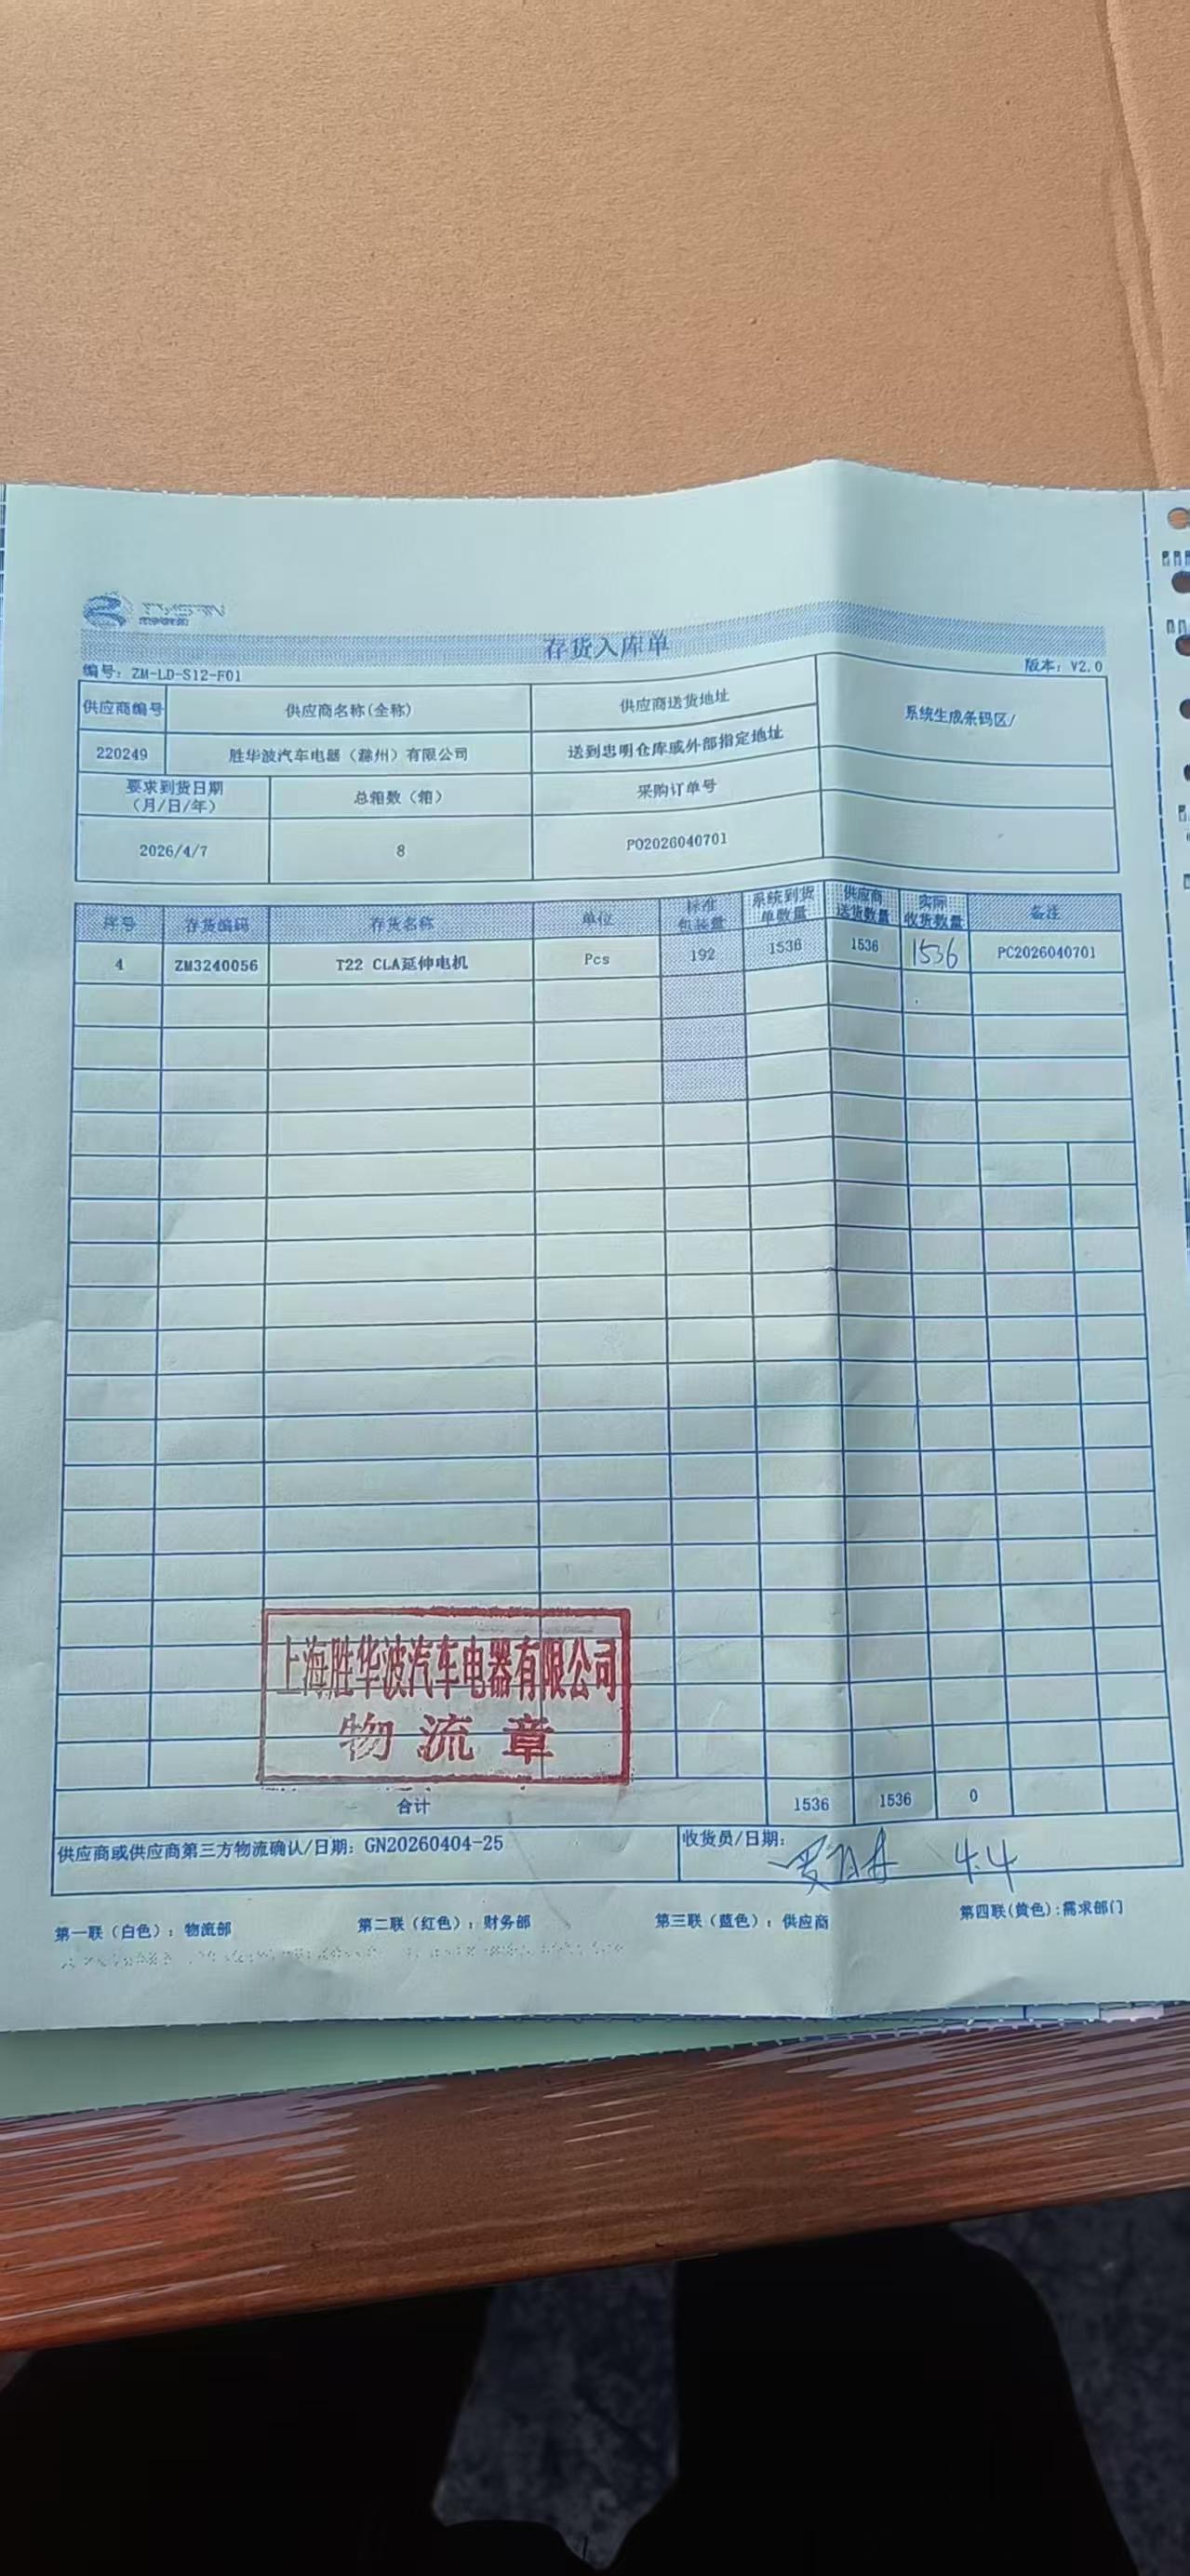 存货入库单
编号: ZM-LD-S12-F01
版本: V2.0
供应商编号 供应商名称(全称) 供应商送货地址 系统生成条码区/
220249 胜华波汽车电器（滁州）有限公司 送到忠明仓库或外部指定地址
要求到货日期（月/日/年） 总箱数（箱） 采购订单号
2026/4/7 8 PO2026040701
序号 存货编码 存货名称 单位 标准包装量 系统到货单数量 供应商送货数量 实际收货数量 备注
4 ZM3240056 T22 CLA延伸电机 Pcs 192 1536 1536 1536 PC2026040701
上海胜华波汽车电器有限公司
物流章
合计 1536 1536 0
供应商或供应商第三方物流确认/日期: GN20260404-25 收货员/日期: 4.4
第一联（白色）: 物流部 第二联（红色）: 财务部 第三联（蓝色）: 供应商 第四联(黄色):需求部门